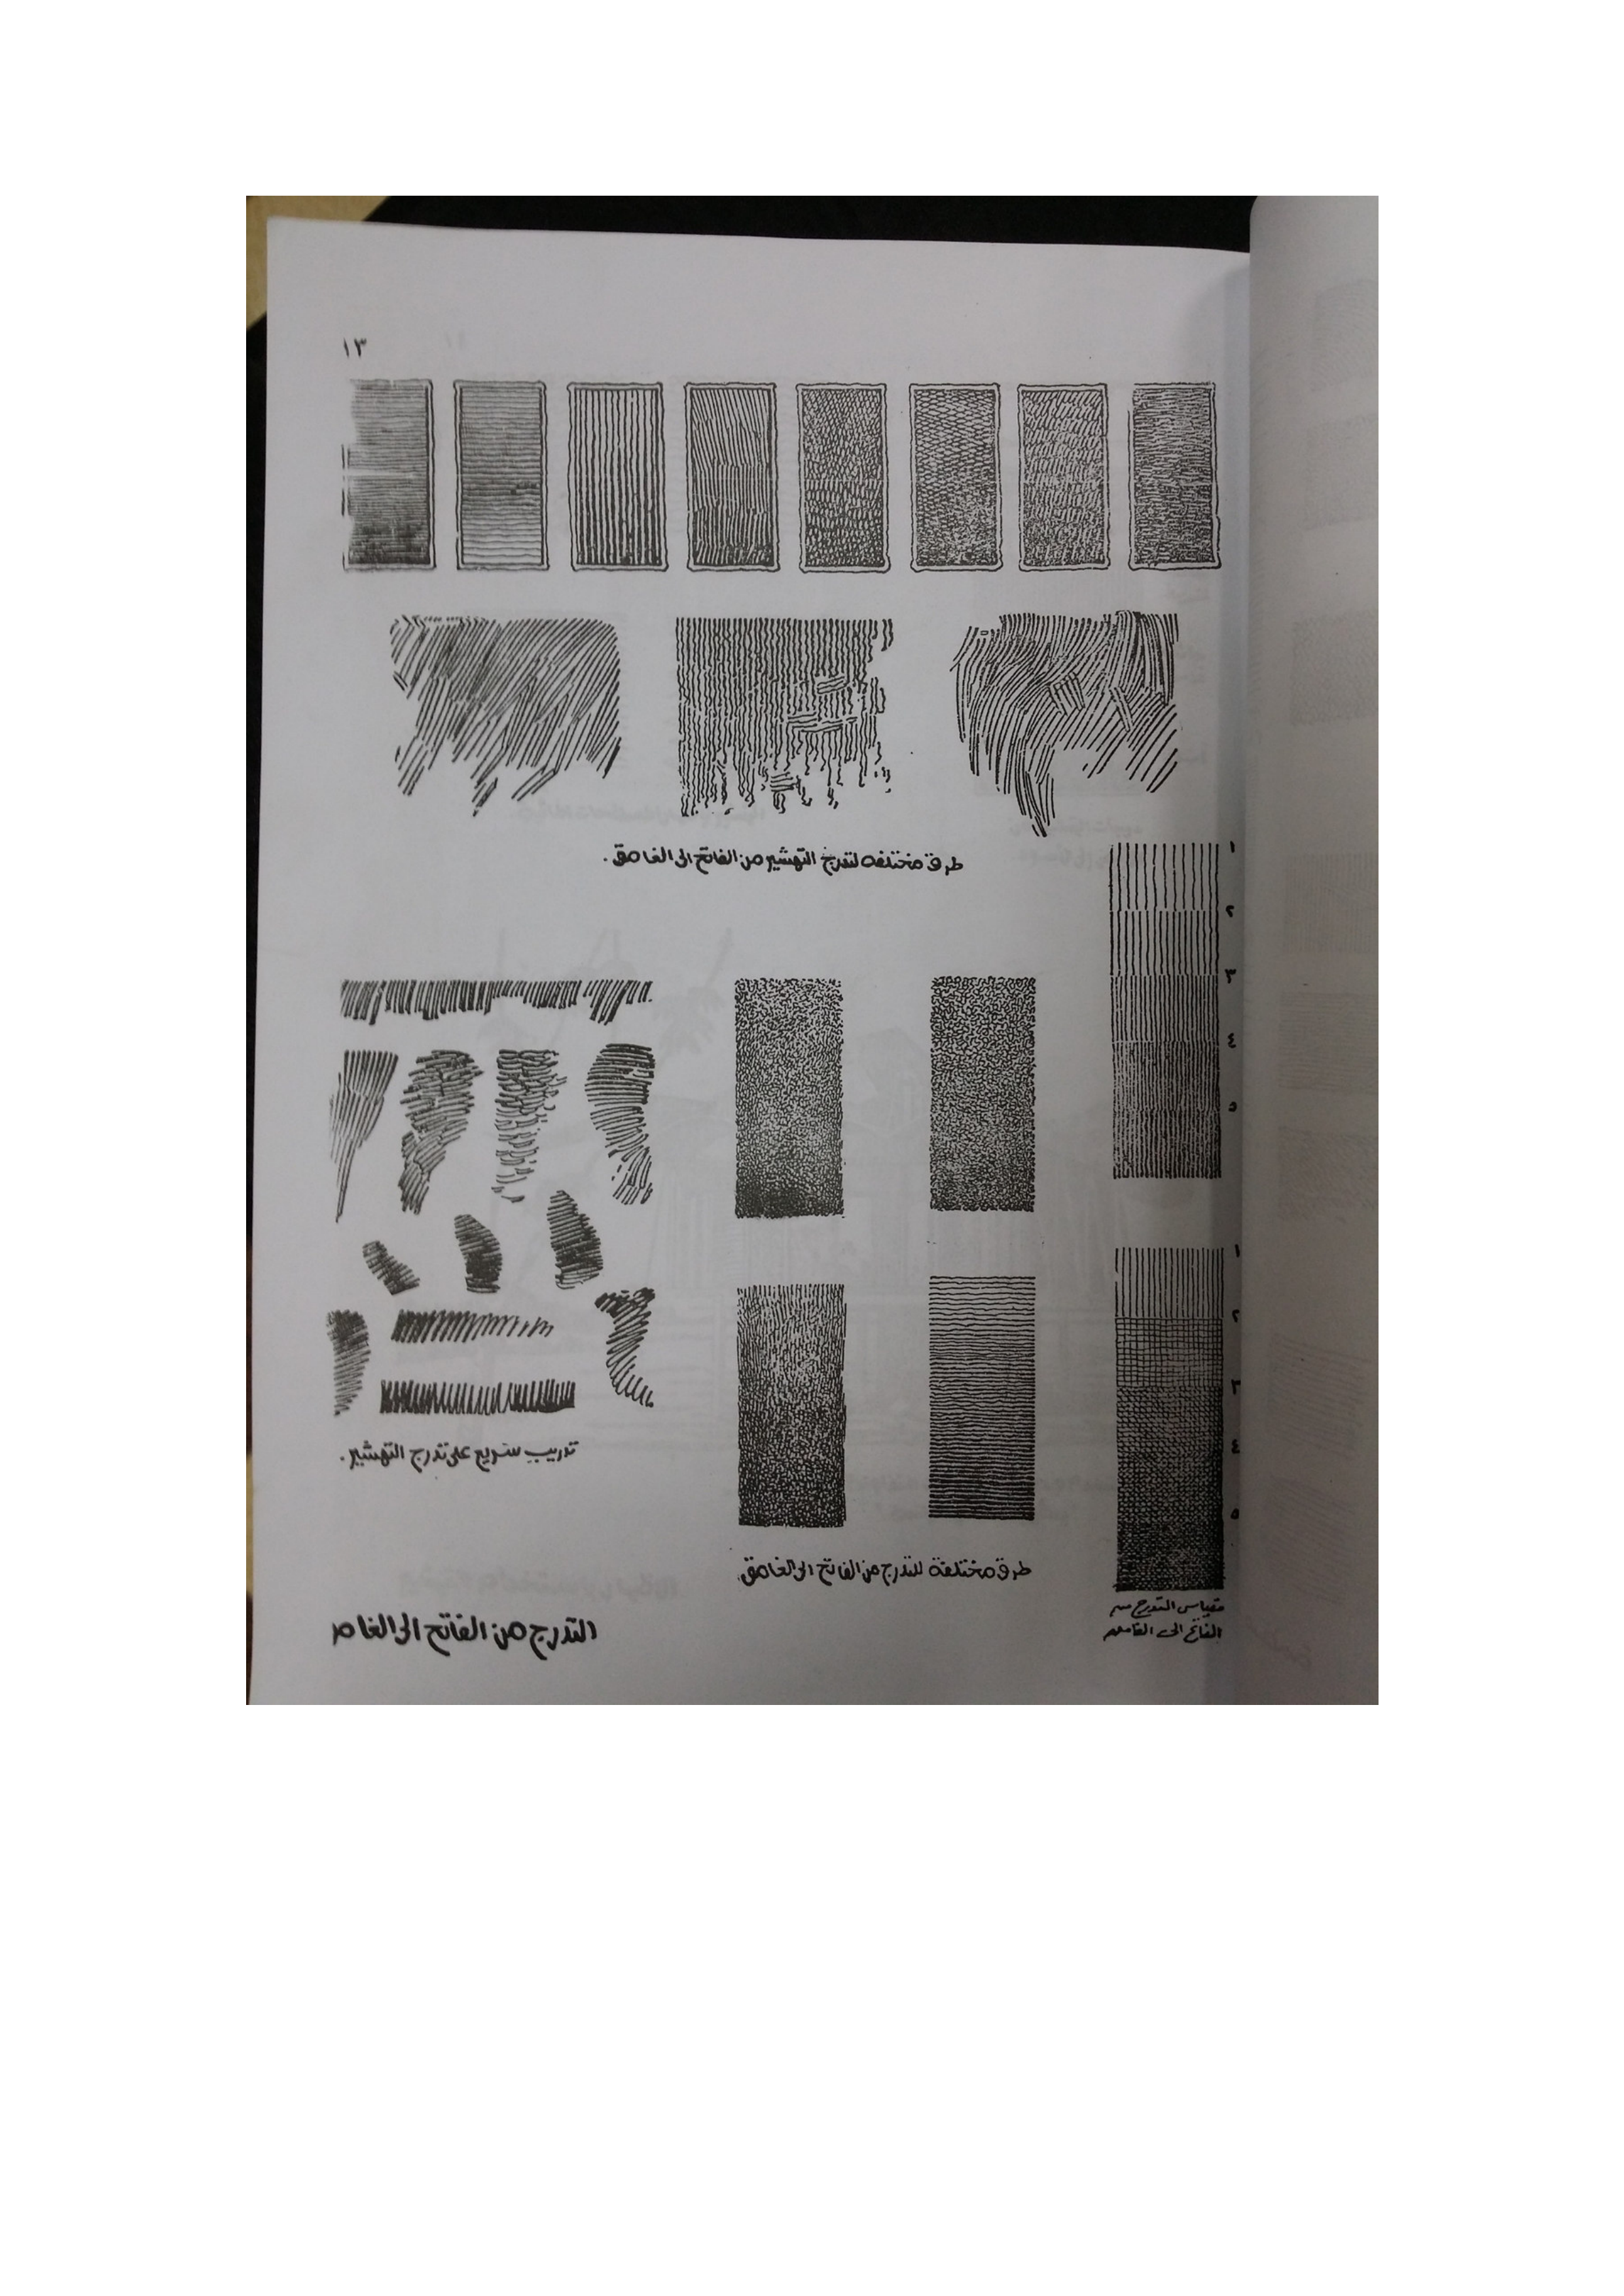 ١٣
طرق مختلفه لتدرج التهشير من الفاتح الى الغامق.
١
٢
٣
٤
٥
١
٢
٣
٤
٥
تدريب سريع على تدرج التهشير.
طرق مختلفة للتدرج من الفاتح الى الغامق.
مقياس التدرج من
الفاتح الى الغامق
التدرج من الفاتح الى الغام